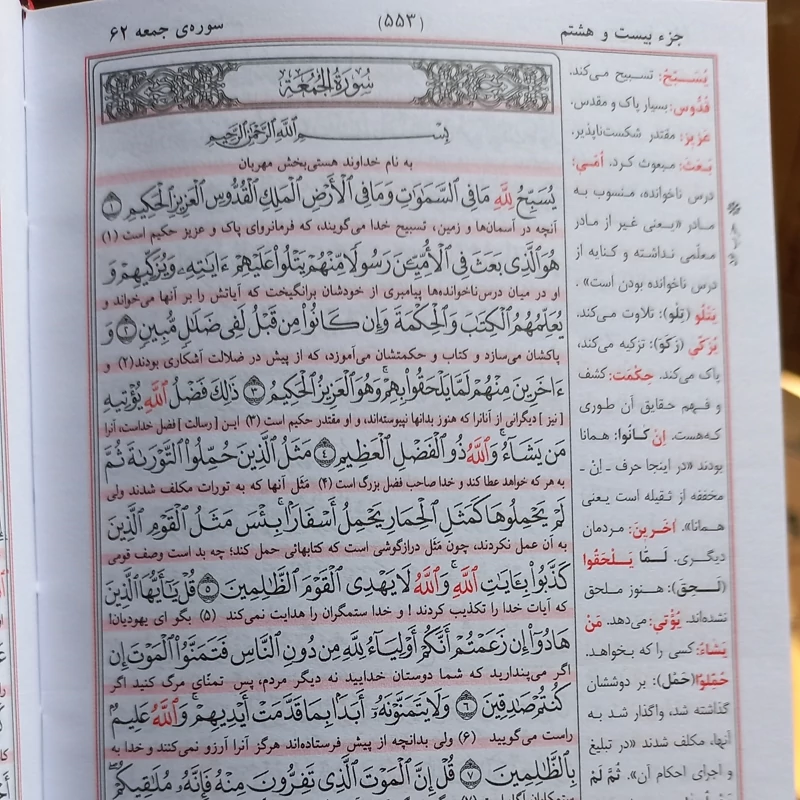 جزء بیست و هشتم
(۵۵۳)
سوره‌ی جمعه ۶۲
سُورَةُ الجُمُعَة
بِسْمِ اللَّهِ الرَّحْمَٰنِ الرَّحِيمِ
به نام خداوند هستی‌بخش مهربان
يُسَبِّحُ لِلَّهِ مَا فِي السَّمَٰوَٰتِ وَمَا فِي الْأَرْضِ الْمَلِكِ الْقُدُّوسِ الْعَزِيزِ الْحَكِيمِ ﴿١﴾
آنچه در آسمان‌ها و زمین، تسبیح خدا می‌گویند، که فرمانروای پاک و عزیز حکیم است (۱)
هُوَ الَّذِي بَعَثَ فِي الْأُمِّيِّـۧنَ رَسُولًا مِّنْهُمْ يَتْلُوا۟ عَلَيْهِمْ ءَايَٰتِهِۦ وَيُزَكِّيهِمْ وَ
او در میان درس‌ناخوانده‌ها پیامبری از خودشان برانگیخت که آیاتش را بر آنها می‌خواند و
يُعَلِّمُهُمُ الْكِتَٰبَ وَالْحِكْمَةَ وَإِن كَانُوا۟ مِن قَبْلُ لَفِي ضَلَٰلٍ مُّبِينٍ ﴿٢﴾ وَ
پاکشان می‌سازد و کتاب و حکمتشان می‌آموزد، که از پیش در ضلالت آشکاری بودند(۲) و
ءَاخَرِينَ مِنْهُمْ لَمَّا يَلْحَقُوا۟ بِهِمْ ۚ وَهُوَ الْعَزِيزُ الْحَكِيمُ ﴿٣﴾ ذَٰلِكَ فَضْلُ اللَّهِ يُؤْتِيهِ
[نیز] دیگرانی از آنانرا که هنوز بدانها نپیوسته‌اند، و او مقتدر حکیم است (۳) ایـن [رسالت] فضل خداست، آنرا
مَن يَشَآءُ ۚ وَاللَّهُ ذُو الْفَضْلِ الْعَظِيمِ ﴿٤﴾ مَثَلُ الَّذِينَ حُمِّلُوا۟ التَّوْرَىٰةَ ثُمَّ
به هر که خواهد عطا کند و خدا صاحب فضل بزرگ است (۴) مَثَل آنها که به تورات مکلف شدند ولی
لَمْ يَحْمِلُوهَا كَمَثَلِ الْحِمَارِ يَحْمِلُ أَسْفَارًا ۚ بِئْسَ مَثَلُ الْقَوْمِ الَّذِينَ
به آن عمل نکردند، چون مَثَل درازگوشی است که کتابهائی حمل کند؛ چه بد است وصف قومی
كَذَّبُوا۟ بِـَٔايَٰتِ اللَّهِ ۚ وَاللَّهُ لَا يَهْدِي الْقَوْمَ الظَّٰلِمِينَ ﴿٥﴾ قُلْ يَٰٓأَيُّهَا الَّذِينَ
که آیات خدا را تکذیب کردند! و خدا ستمگران را هدایت نمی‌کند (۵) بگو ای یهودیان!
هَادُوٓا۟ إِن زَعَمْتُمْ أَنَّكُمْ أَوْلِيَآءُ لِلَّهِ مِن دُونِ النَّاسِ فَتَمَنَّوُا۟ الْمَوْتَ إِن
اگر می‌پندارید که شما دوستان خدایید نه دیگر مردم، پس تمنّای مرگ کنید اگر
كُنتُمْ صَٰدِقِينَ ﴿٦﴾ وَلَا يَتَمَنَّوْنَهُۥٓ أَبَدًۢا بِمَا قَدَّمَتْ أَيْدِيهِمْ ۚ وَاللَّهُ عَلِيمٌۢ
راست می‌گویید (۶) ولی بدانچه از پیش فرستاده‌اند هرگز آنرا آرزو نمی‌کنند و خدا به
بِالظَّٰلِمِينَ ﴿٧﴾ قُلْ إِنَّ الْمَوْتَ الَّذِي تَفِرُّونَ مِنْهُ فَإِنَّهُۥ مُلَٰقِيكُمْ ۖ
یُسَـبِّـحُ: تسبیح می‌کند.
قُدُّوس: بسیار پاک و مقدس.
عَزِیز: مقتدر شکست‌ناپذیر.
بَـعَثَ: مبعوث کرد. أمّی:
درس ناخوانده، منسوب به
مـادر «یـعنی غیر از مادر
معلّمی نداشته و کنایه از
درس ناخوانده بودن است».
یَتلُو (تِلو): تلاوت می‌کند.
یُزَکّی (زَکَوَ): تزکیه می‌کند،
پاک می‌کند. حِکْمَت: کشف
و فهم حقایق آن طوری
که‌هست. إنْ کـانُوا: همانا
بودند «در اینجا حرف ـ إنْ ـ
مخففه از ثـقیله است یـعنی
همانا». آخَرینَ: مردمان
دیگـری. لَـمّا یَـلْـحَقُوا
(لَـحِقَ): هـنوز مـلحق
نشده‌اند. یُؤْتی: می‌دهد. مَنْ
یَشاءُ: کسی را که بـخواهد.
حُمِّلُوا (حَمْل): بر دوششان
گذاشته شد، واگذار شد بـه
آنها، مکلف شدند «در تبلیغ
و اجرای احکام آن». ثُـمَّ لَمْ